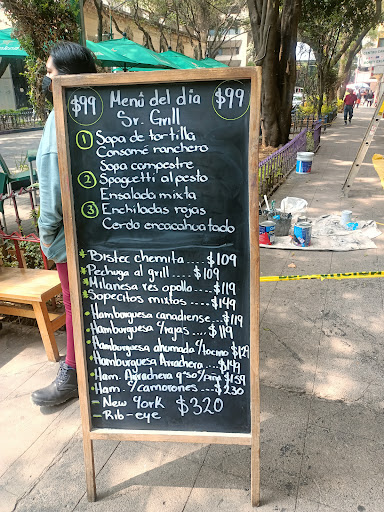 $99 Menú del día $99
Sr. Grill
1 Sopa de tortilla
Consomé ranchero
Sopa campestre
2 Spaguetti al pesto
Ensalada mixta
3 Enchiladas rojas
Cerdo encacahuatado
* Bistec chemita .... $109
* Pechuga al grill ... $109
* Milanesa res o pollo .... $119
* Sopecitos mixtos .... $149
Hamburguesa canadiense ... $119
Hamburguesa c/rajas .... $119
Hamburguesa ahumada c/tocino $129
Hamburguesa Arrachera ... $149
Ham. Arrachera q-so c/piña $159
Ham. c/camarones ... $230
- New York $320
- Rib-eye